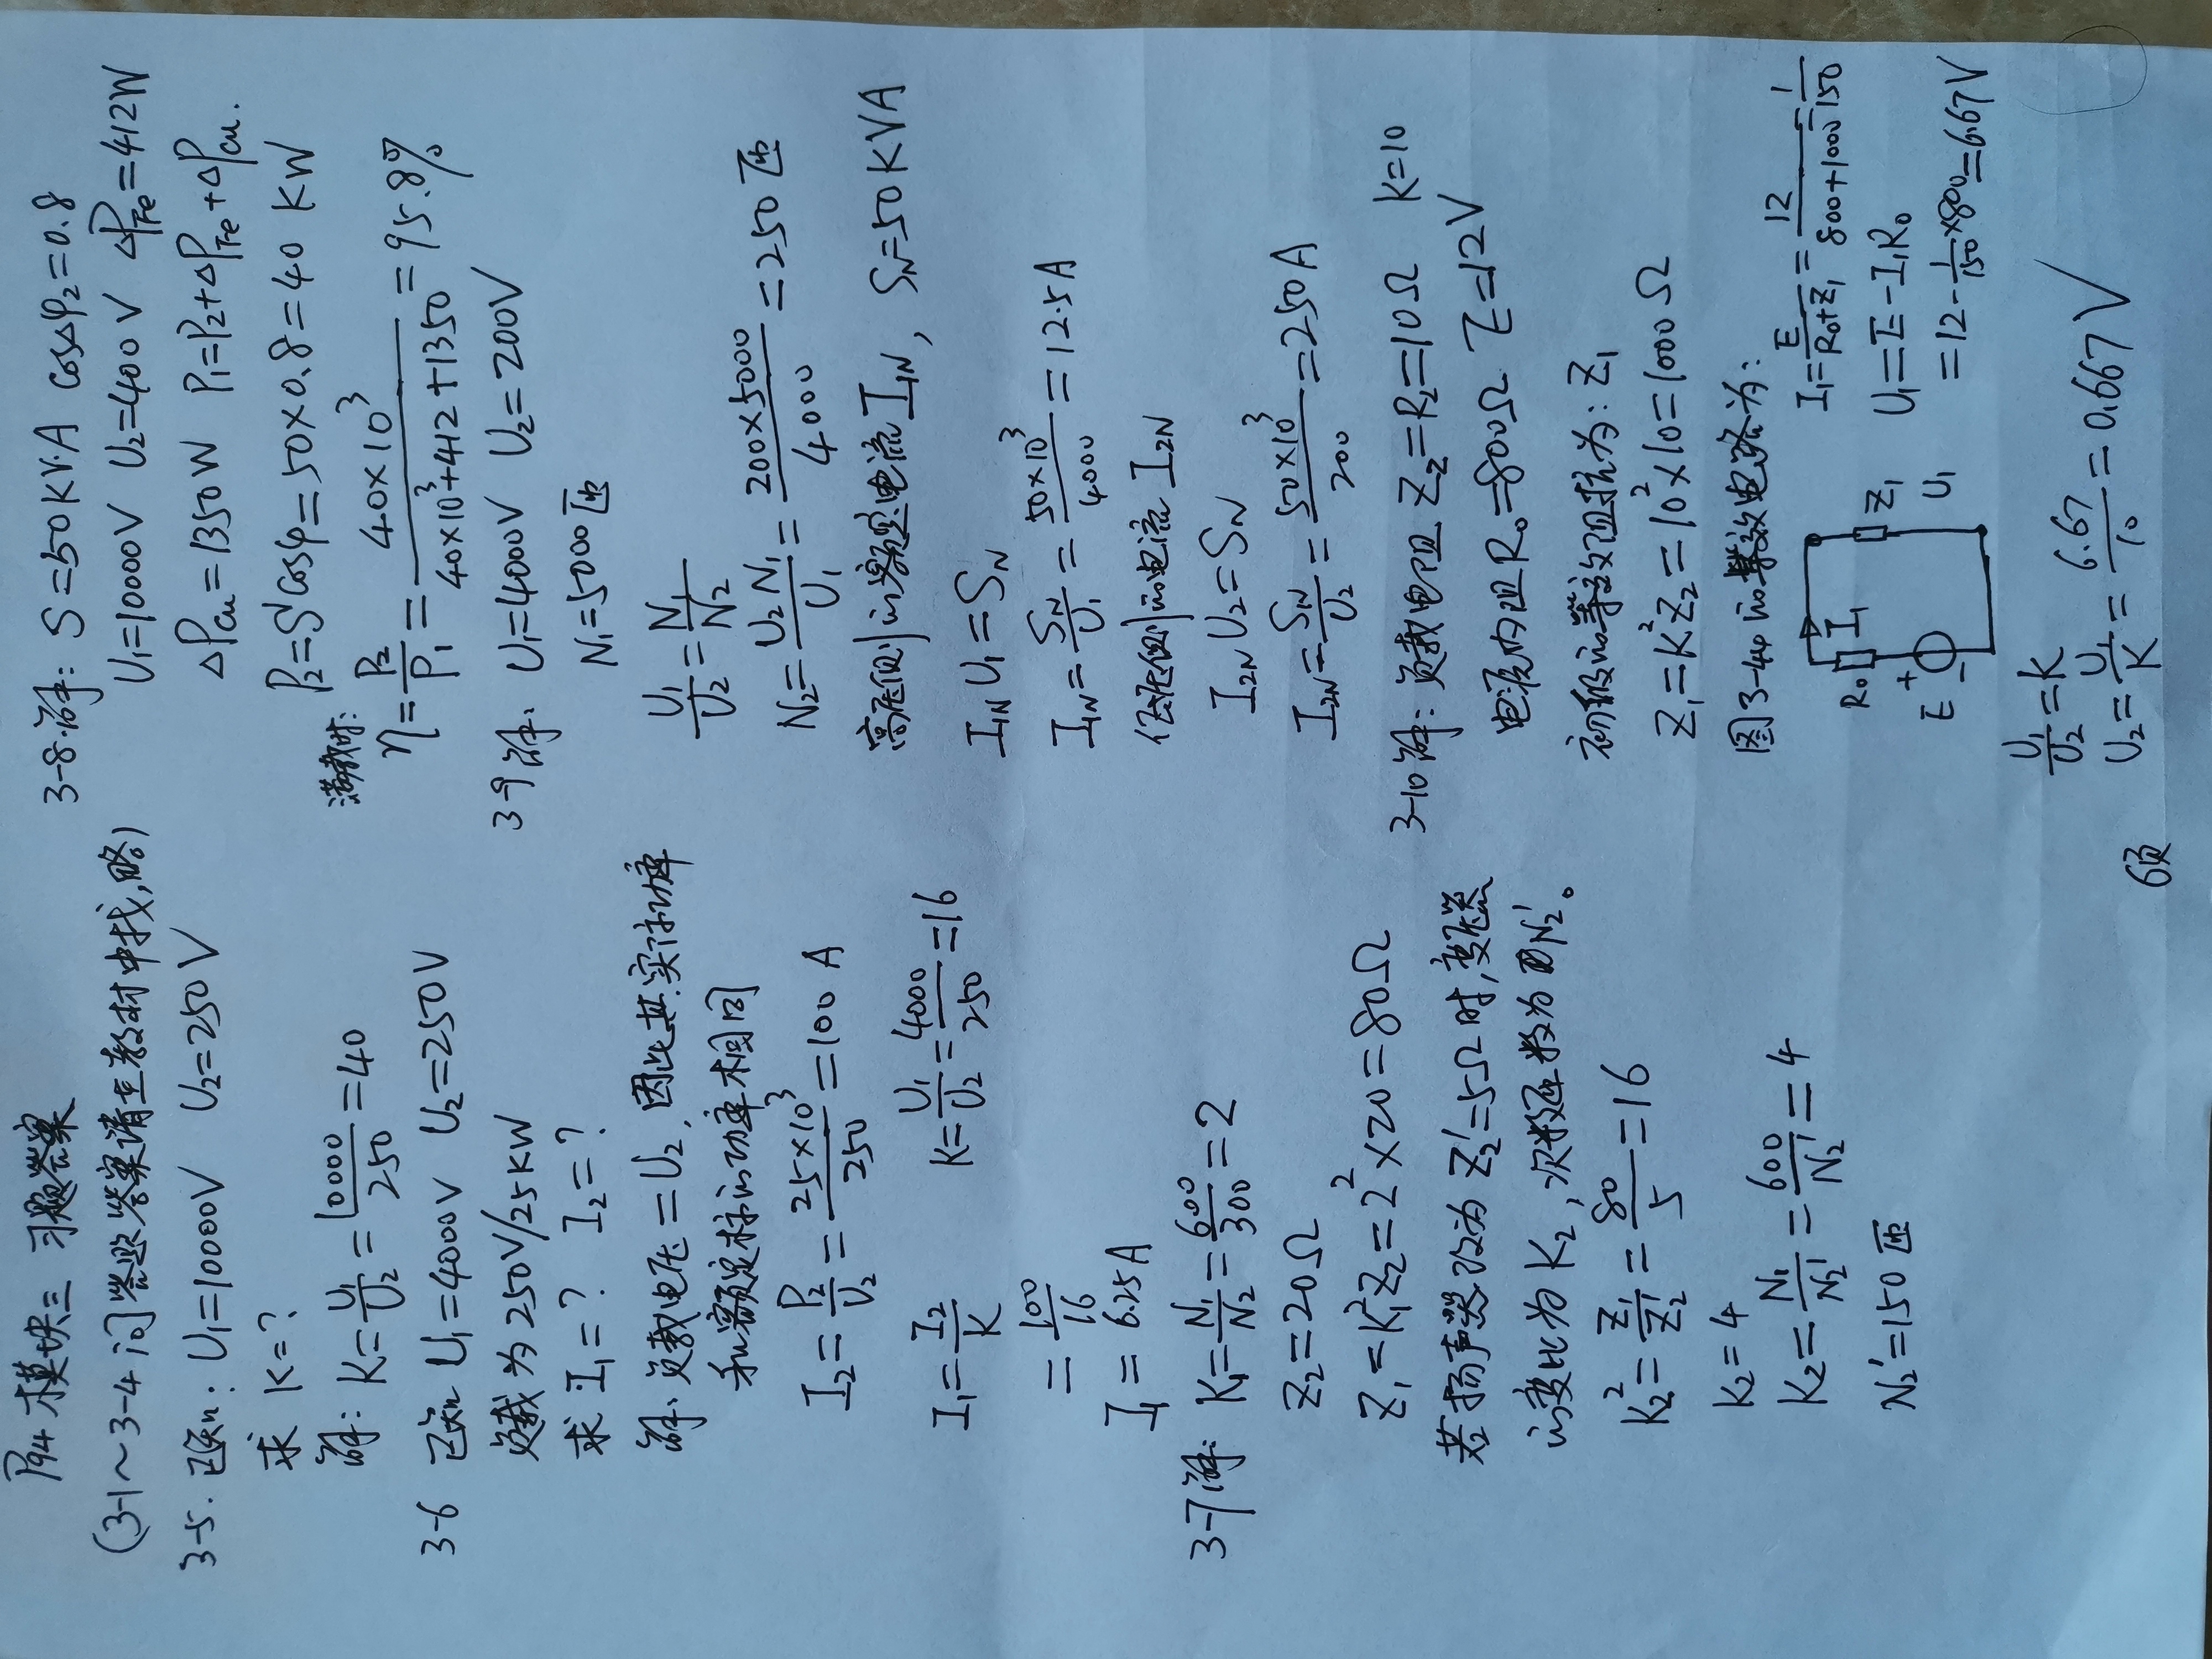 P94 模块三 习题答案
(3-1～3-4 问答题答案请在教材中找,略)
3-5. 已知: U₁=10000V U₂=250V
求 K=?
解: K=U₁/U₂=10000/250=40
3-6 已知 U₁=4000V U₂=250V
负载为250V/25KW
求:I₁=? I₂=?
解: 负载电压=U₂, 因此其实际功率
和额定标的功率相同
I₂=P₂/U₂=25×10³/250=100A
I₁=I₂/K K=U₁/U₂=4000/250=16
=100/16
I₁=6.25A
3-7解: K₁=N₁/N₂=600/300=2
Z₂=20Ω
Z₁=K₁²Z₂=2²×20=80Ω
若扬声器改为Z₂'=5Ω时,变压器
的变比为K₂,次级匝数为N₂'。
K₂²=Z₁/Z₂'=80/5=16
K₂=4
K₂=N₁/N₂'=600/N₂'=4
N₂'=150匝
3-8.解: S=50KV·A cosφ₂=0.8
U₁=10000V U₂=400V ΔP_Fe=412W
ΔP_Cu=1350W P₁=P₂+ΔP_Fe+ΔP_Cu.
P₂=S'cosφ=50×0.8=40KW
满载时:
η=P₂/P₁=40×10³/40×10³+412+1350=95.8%
3-9解、U₁=4000V U₂=200V
N₁=5000匝
U₁/U₂=N₁/N₂
N₂=U₂N₁/U₁=200×5000/4000=250匝
高压侧的额定电流I₁N, S_N=50KVA
I₁N U₁=S_N
I₁N=S_N/U₁=50×10³/4000=12.5A
低压侧的电流I₂N
I₂N U₂=S_N
I₂N=S_N/U₂=50×10³/200=250A
3-10解: 负载电阻Z₂=R₂=10Ω K=10
电源内阻R₀=800Ω E=12V
初级的等效阻抗为: Z₁
Z₁=K²Z₂=10²×10=1000Ω
图3-44的等效电路为:
I₁=E/R₀+Z₁=12/800+1000=1/150
R₀ I₁ Z₁
E + - U₁
U₁=E-I₁R₀
=12-1/150×800=6.67V
U₁/U₂=K
U₂=U₁/K=6.67/10=0.667V
6页